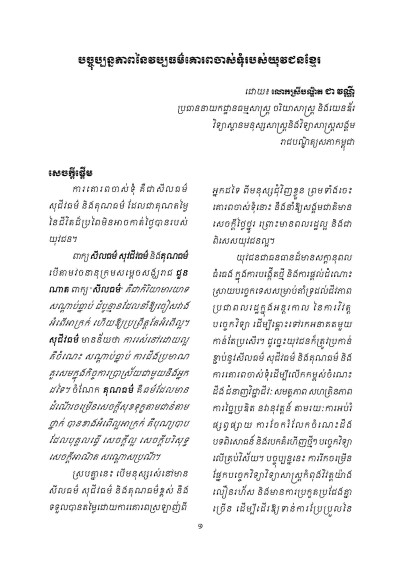 បច្ចុប្បន្នភាពនៃវប្បធម៌គោរពចាស់ទុំរបស់យុវជនខ្មែរ
ដោយ៖ លោកស្រីបណ្ឌិត ជា វណ្ណី
ប្រធាននាយកដ្ឋានធម្មសាស្ត្រ ចរិយាសាស្ត្រ និងយេនឌ័រ
វិទ្យាស្ថានមនុស្សសាស្ត្រនិងវិទ្យាសាស្ត្រសង្គម
រាជបណ្ឌិត្យសភាកម្ពុជា
សេចក្តីផ្តើម
ការគោរពចាស់ទុំ គឺជាសីលធម៌
សុជីវធម៌ និងគុណធម៌ ដែលជាគុណតម្លៃ
នៃជីវិតដ៏ប្រពៃមិនអាចកាត់ថ្លៃបានរបស់
យុវជន។
ពាក្យ សីលធម៌ សុជីវធម៌ និងគុណធម៌
បើតាមវចនានុក្រមសម្តេចសង្ឃរាជ ជួន
ណាត ពាក្យ“សីលធម៌ គឺជាកិរិយាមារយាទ
សណ្តាប់ធ្នាប់ ដ៏ប្លូន្មានដែលនាំឱ្យចៀសវាង
អំពើអាក្រក់ ហើយឱ្យប្រព្រឹត្តតែអំពើល្អ។
សុជីវធម៌ មានន័យថា ការរស់នៅដោយល្អ
គឺចំណេះ សណ្តាប់ធ្នាប់ ការដឹងប្រមាណ
គួរសមក្នុងកិច្ចការប្រាស្រ័យជាមួយនឹងអ្នក
ដទៃ។ ចំណែក គុណធម៌ គឺធម៌ដែលមាន
ដំណើរចម្រើនសេចក្តីសុខទុក្ខតាមជាន់តាម
ថ្នាក់ បានខាងអំពើល្អអាក្រក់ គឺបុណ្យបាប
ដែលបុគ្គលធ្វើ សេចក្តីល្អ សេចក្តីបរិសុទ្ធ
សេចក្តីអាណិត សណ្តោសប្រណី។
ស្របគ្នានេះ បើមនុស្សរស់នៅមាន
សីលធម៌ សុជីវធម៌ និងគុណធម៌ខ្ពស់ នឹង
ទទួលបានតម្លៃដោយការគោរពស្រឡាញ់ពី
អ្នកដទៃ ពីមនុស្សជុំវិញខ្លួន ព្រមទាំងចេះ
គោរពចាស់ទុំនោះ នឹងនាំឱ្យសង្គមជាតិមាន
សេចក្តីថ្លៃថ្នូរ ព្រោះមានពលរដ្ឋល្អ និងជា
ពិសេសយុវជនល្អ។
យុវជនជាធនធានដ៏មានសក្តានុពល
ធំធេង ក្នុងការបង្កើតថ្មី និងការផ្តល់ដំណោះ
ស្រាយប្រចេកទេសសម្រាប់គាំទ្រដល់ជីវភាព
ប្រជាពលរដ្ឋក្នុងអន្តរកាល នៃការវិវត្ត
បច្ចេកវិទ្យា ដើម្បីឆ្ពោះទៅរកអនាគតមួយ
កាន់តែប្រសើរ។ ដូច្នេះយុវជនក៏ត្រូវប្រកាន់
ខ្ជាប់នូវសីលធម៌ សុជីវធម៌ និងគុណធម៌ និង
ការគោរពចាស់ទុំដើម្បីលើកកម្ពស់ចំណេះ
ដឹង ជំនាញវិជ្ជាជីវៈ សមត្ថភាព សហត្រិនភាព
ការច្នៃប្រឌិត នវានុវត្តន៍ តាមរយៈការអប់រំ
ផ្សព្វផ្សាយ ការចែករំលែកចំណេះដឹង
បទពិសោធន៍ និងរបកគំហើញថ្មីៗ បច្ចេកវិទ្យា
លើគ្រប់វិស័យ។ បច្ចុប្បន្ននេះ ការរីកចម្រើន
ផ្នែកបច្ចេកវិទ្យាវិទ្យាសាស្ត្រកំពុងវិវត្តយ៉ាង
លឿនរហ័ស និងមានការប្រកួតប្រជែងគ្នា
ច្រើន ដើម្បីដើរឱ្យទាន់ការប្រែប្រួលនៃ
១